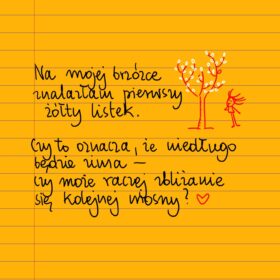 Na mojej brzózce
znalazłam pierwszy
żółty listek.
Czy to oznacza, że niedługo
będzie zima –
czy może raczej zbliżanie
się kolejnej wiosny?